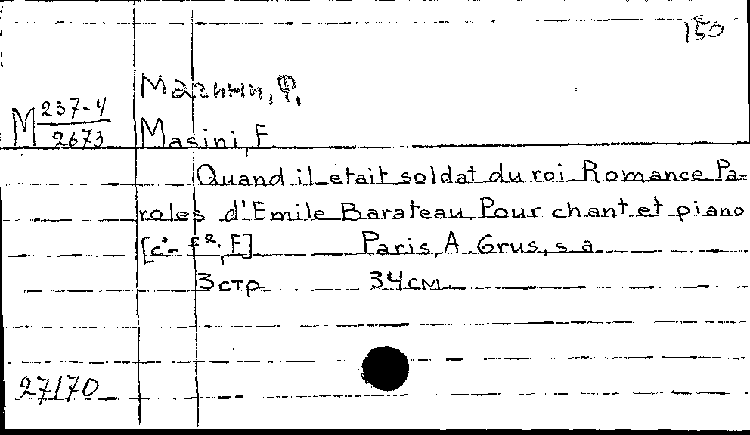 150
Мазини, Ф.
M 237-4/2673
Masini, F.
Quand il etait soldat du roi. Romance. Pa-
roles d'Emile Barateau. Pour chant et piano
[c¹- f², F] Paris, A. Grus, s. a.
3 стр. 34 см.
27170